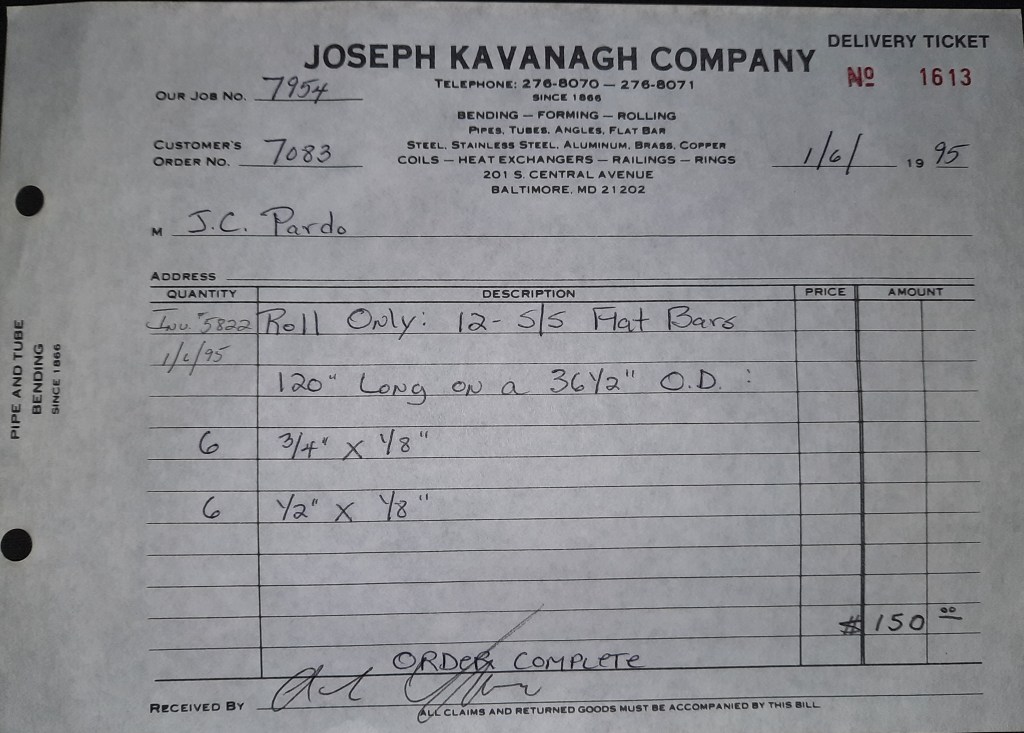 DELIVERY TICKET
JOSEPH KAVANAGH COMPANY
Nº 1613
TELEPHONE: 276-8070 — 276-8071
SINCE 1866
OUR JOB NO. 7954
BENDING — FORMING — ROLLING
PIPES, TUBES, ANGLES, FLAT BAR
CUSTOMER'S
ORDER NO. 7083
STEEL, STAINLESS STEEL, ALUMINUM, BRASS, COPPER
COILS — HEAT EXCHANGERS — RAILINGS — RINGS
1/6/ 19 95
201 S. CENTRAL AVENUE
BALTIMORE, MD 21202
M J.C. Pardo
ADDRESS
QUANTITY DESCRIPTION PRICE AMOUNT
Inv. #5822 Roll Only: 12- S/S Flat Bars
1/6/95
120" Long on a 36 1/2" O.D. :
6 3/4" X 1/8"
6 1/2" X 1/8"
$ 150 00
ORDER COMPLETE
RECEIVED BY
ALL CLAIMS AND RETURNED GOODS MUST BE ACCOMPANIED BY THIS BILL
PIPE AND TUBE
BENDING
SINCE 1866